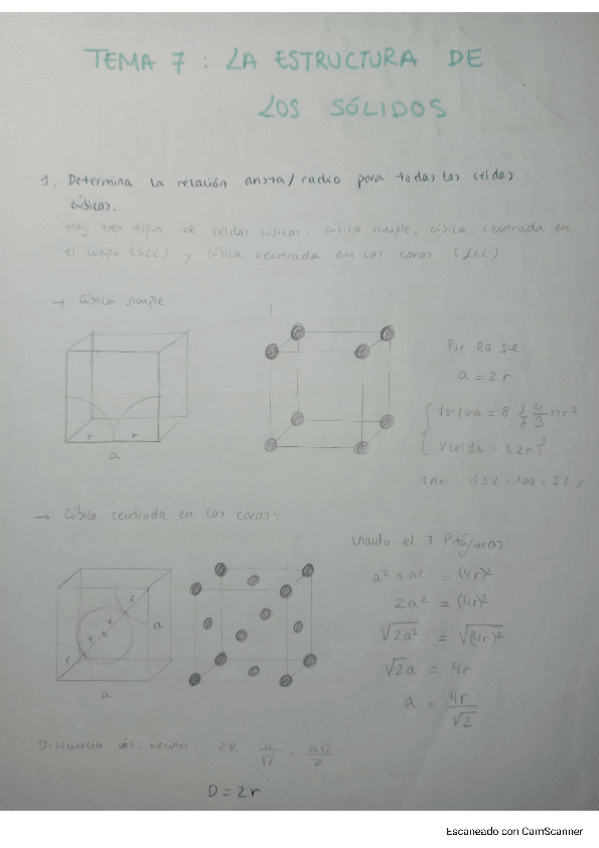 TEMA 7 : LA ESTRUCTURA DE
LOS SÓLIDOS
1. Determina la relación arista/radio para todas las celdas
cúbicas.
Hay tres tipos de celdas cúbicas: cúbica simple, cúbica centrada en
el cuerpo (bcc) y cúbica centrada en las caras (fcc).
→ Cúbica simple:
r r
a
Por lo que
a = 2r
Vesfera = 8 1/8 4/3 πr³
Vcelda = (2r)³
52 · 100 = 52 %
→ Cúbica centrada en las caras:
r r r r
a
a
Usando el T. Pitágoras
a² + a² = (4r)²
2a² = (4r)²
√2a² = √(4r)²
√2a = 4r
a = 4r/√2
Distancia 2R a/√2 = a√2/2
D = 2r
Escaneado con CamScanner